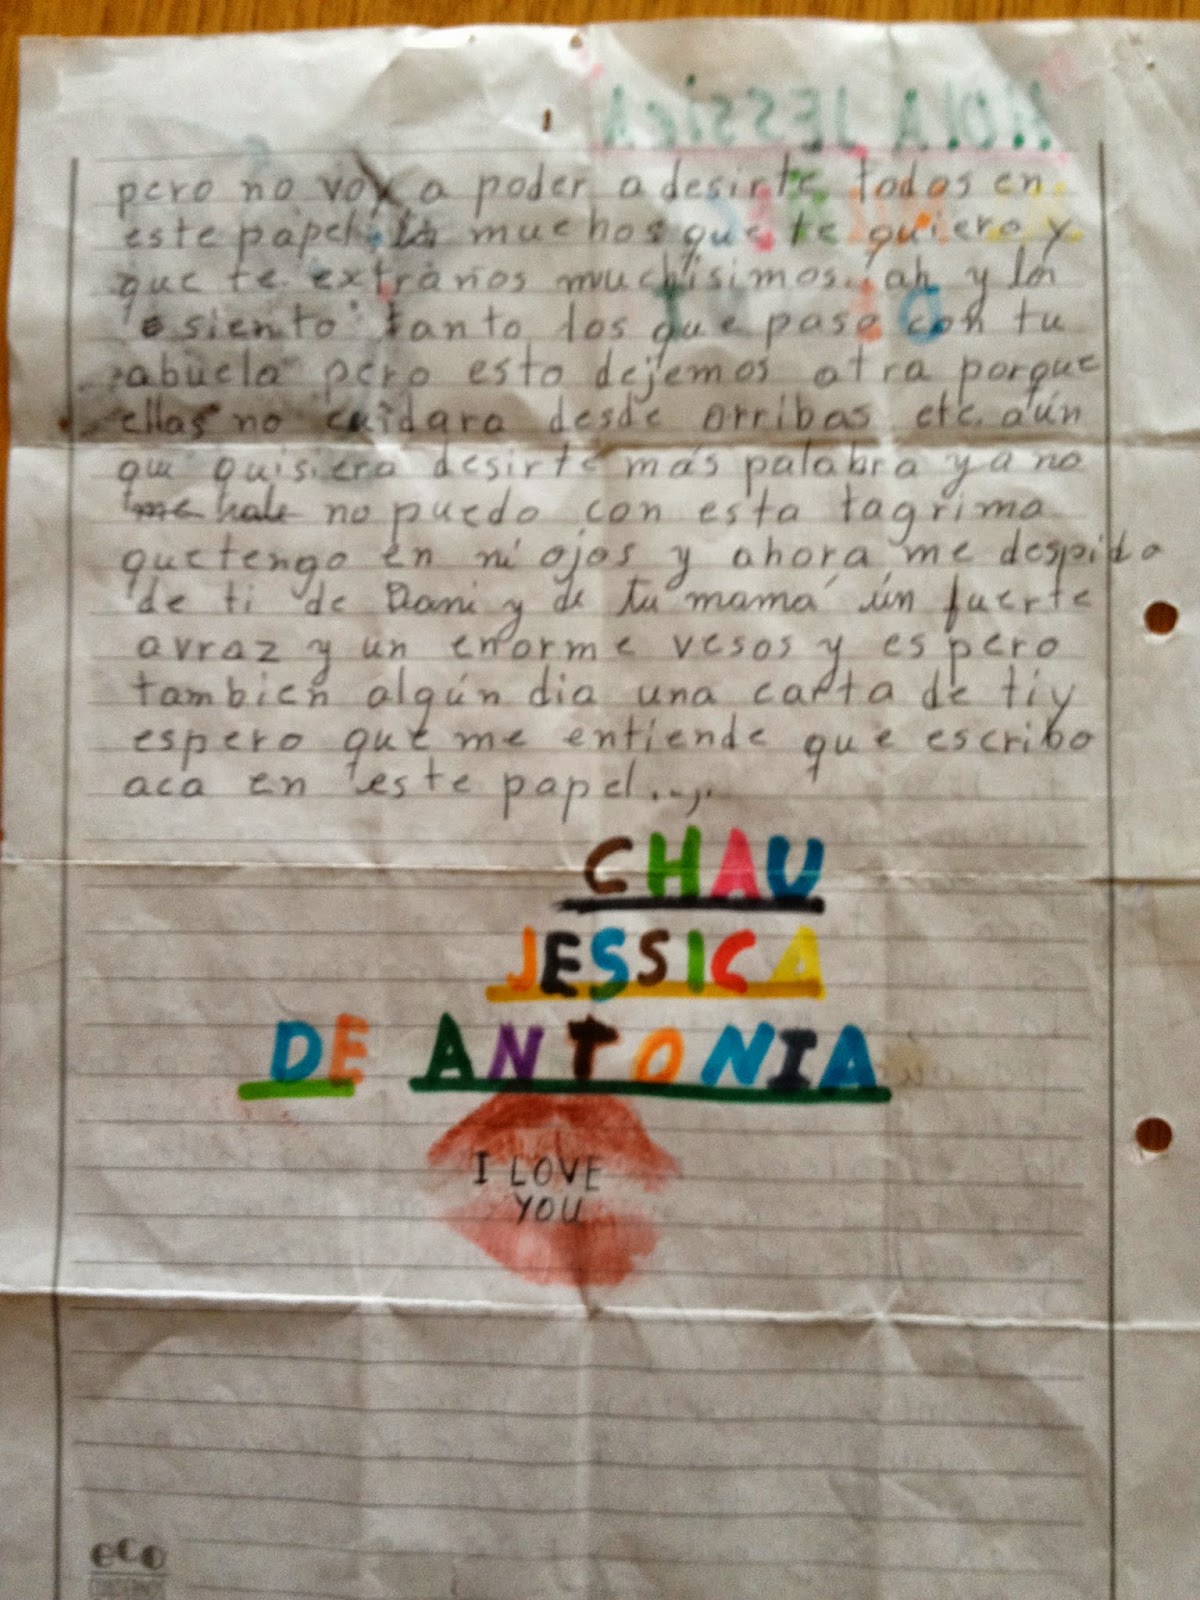 HOLA JESSICA
pero no voy a poder a desirte todos en
este papel lo muchos que te quiero y
que te extraños muchisimos. ah y lo
siento tanto los que paso con tu
abuela pero esto dejemos otra porque
ellas no cuidara desde arribas etc. aún
que quisiera desirte más palabra ya no
me hale no puedo con esta lagrima
quetengo en ni ojos y ahora me despido
de ti de Dani y de tu mamá ún fuerte
avraz y un enorme vesos y espero
tambien algún dia una carta de ti y
espero que me entiende que escribo
aca en este papel....
CHAU
JESSICA
DE ANTONIA
I LOVE
YOU
eco
CUADERNOS